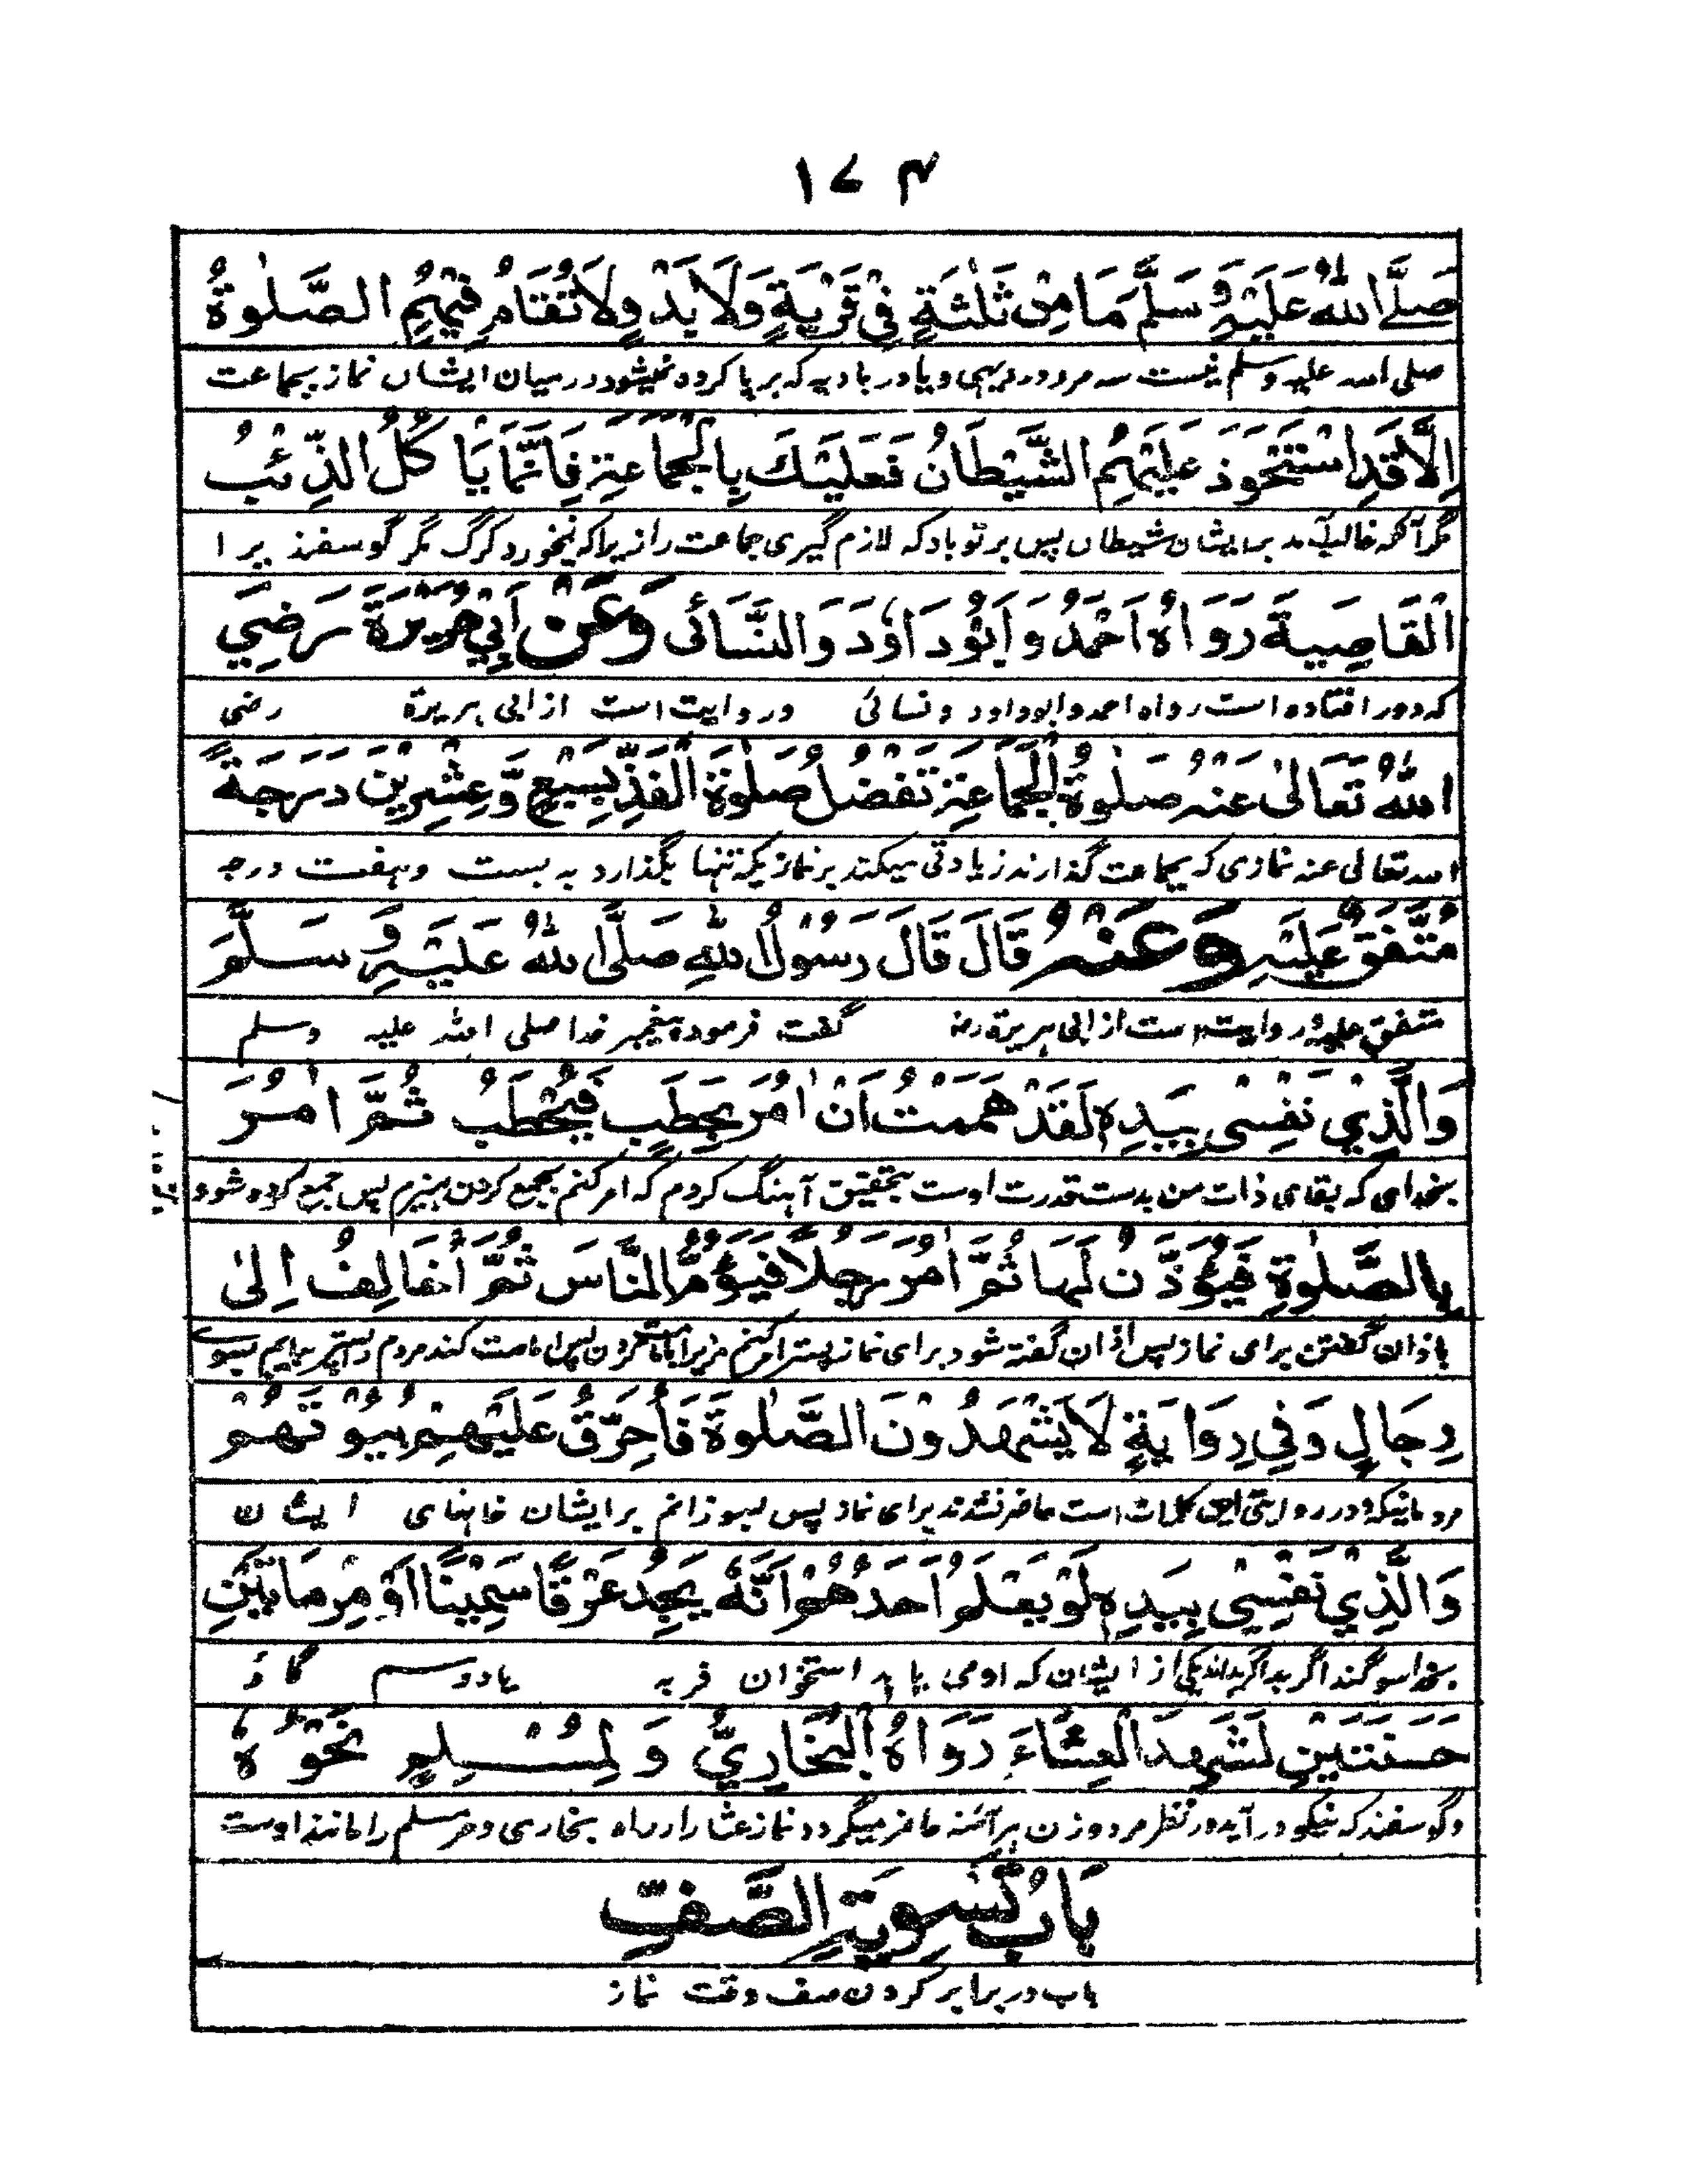 ۱۷۴
صَلَّے اللّٰهُ عَلَیْهِ وَسَلَّمَ مَا مِنْ ثَلٰثَةٍ فِیْ قَرْیَةٍ وَلَا بَدْوٍ لَا تُقَامُ فِیْهِمُ الصَّلٰوةُ
صلی الله علیه وسلم نیست سه مرد در دیهی و یا در بادیه که برپا کرده نمیشود در میان ایشان نماز بجماعت
اِلَّا قَدِ اسْتَحْوَذَ عَلَیْهِمُ الشَّیْطَانُ فَعَلَیْكَ بِالْجَمَاعَةِ فَاِنَّمَا یَاْ کُلُ الذِّئْبُ
مگر آنکه غالب آمد بر ایشان شیطان پس بر تو باد که لازم گیری جماعت را زیرا که نیخورد گرگ مگر گوسفند یر ا
الْقَاصِیَةَ رَوَاهُ اَحْمَدُ وَ اَبُوْدَاوٗدَ وَ النَّسَائی وَعَنْ اَبِیْ هُرَیْرَةَ رَضِیَ
که دور افتاده است رواه احمد و ابوداود و نسائی و روایت است از ابی هریرة رضی
اللّٰهُ تَعَالٰی عَنْهُ صَلٰوةُ الْجَمَاعَةِ تَفْضُلُ صَلٰوةَ الْفَذِّ بِسَبْعٍ وَّ عِشْرِیْنَ دَرَجَةً
الله تعالی عنه نمازی که بجماعت گذارند زیادتی میکند بر نمازیکه تنها بگذارد به بست و هفت درجه
مُتَّفَقٌ عَلَیْهِ وَعَنْهُ قَالَ قَالَ رَسُوْلُ اللّٰهِ صَلَّی اللّٰهُ عَلَیْهِ وَ سَلَّمَ
متفق علیه و روایت است از ابی هریرة رضه گفت فرموده پیغمبر خدا صلی الله علیه وسلم
وَالَّذِیْ نَفْسِی بِیَدِهٖ لَقَدْ هَمَمْتُ اَنْ اٰمُرَ بِحَطَبٍ فَیُحْطَبُ ثُمَّ اٰمُرَ
بخدای که بقای ذات من بدست قدرت اوست بتحقیق آهنگ کردم که امر کنم بجمع کردن هیزم پس جمع کرده شود
بِالصَّلٰوةِ فَیُؤَذَّنُ لَهَا ثُمَّ اٰمُرَ رَجُلًا فَیَؤُمُّ النَّاسَ ثُمَّ اُخَالِفُ اِلٰی
باذان گفتن برای نماز پس اذان گفته شود برای نماز پستر امر کنم مردم را پستر بیایم بسوے
رِجَالٍ وَفِیْ رِوَایَةٍ لَا یَشْهَدُوْنَ الصَّلٰوةَ فَاُحَرِّقُ عَلَیْهِمْ بُیُوْ تَهُمْ
مردمانیکه و در روایتی این کلمات است حاضر نشدند برای نماز پس بسوزانم بر ایشان خانهای ایشان
وَالَّذِیْ نَفْسِیْ بِیَدِهٖ لَوْ یَعْلَمُ اَحَدُهُمْ اَنَّهٗ یَجِدُ عَرْقًا سَمِیْنًا اَوْ مِرْمَاتَیْنِ
سوگند اگر یکی از ایشان که اومی یابد استخوان فربه یا دو سم گاؤ
حَسَنَتَیْنِ لَشَهِدَ الْعِشَاءَ رَوَاهُ الْبُخَارِیُّ وَ لِمُسْلِمٍ نَحْوُهٗ
و گوسفند که نیکو در آید در نظر مرد و زن هر آئنه حاضر میگردد نماز عشا را رواه بخاری و مر مسلم را مانند اوست
بَابُ تَسْوِیَةِ الصَّفِّ
باب در برابر کردن صف وقت نماز